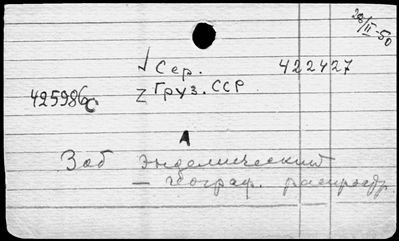 28/II-50
√ Сер. 422427
425986с Z Груз. ССР
А
Зоб эндемический
— географ. распростр.